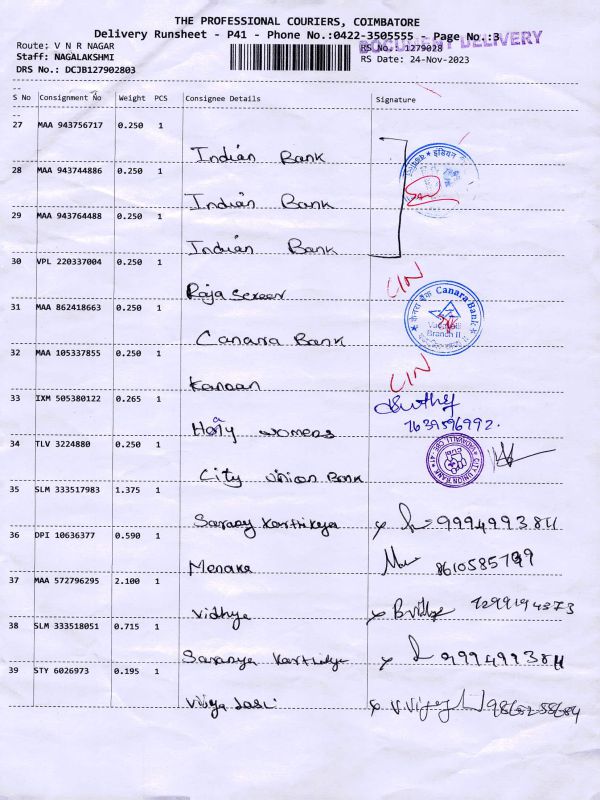 THE PROFESSIONAL COURIERS, COIMBATORE
Delivery Runsheet - P41 - Phone No.:0422-3505555 - Page No.:3
DOCUMENT DELIVERY
Route: V N R NAGAR
Staff: NAGALAKSHMI
DRS No.: DCJB127902803
RS No.: 1279028
RS Date: 24-Nov-2023
S No Consignment No Weight PCS Consignee Details Signature
27 MAA 943756717 0.250 1
Indian Bank
28 MAA 943744886 0.250 1
Indian Bank
29 MAA 943764488 0.250 1
Indian Bank
30 VPL 220337004 0.250 1
Raja Screen
31 MAA 862418663 0.250 1
Canara Bank
केनरा बैंक Canara Bank
Branch II
32 MAA 105337855 0.250 1
Kannan
33 IXM 505380122 0.265 1
7639596992.
Holy womens
34 TLV 3224880 0.250 1
CITY UNION BANK
City Union Bank
35 SLM 333517983 1.375 1
Saranya Karthikya 9994993811
36 DPI 10636377 0.590 1
Menaka 8610585799
37 MAA 572796295 2.100 1
Vidhya
38 SLM 333518051 0.715 1
Saranya Karthikya 9994993811
39 STY 6026973 0.195 1